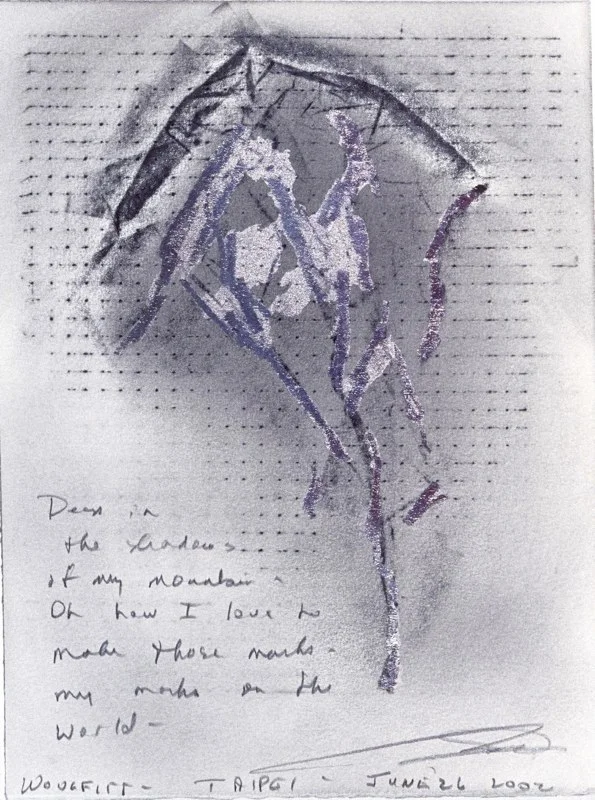 Deep in
the shadows
of my mountain -
Oh how I love to
make those marks -
my marks on the
world -
TAIPEI - JUNE 26 2002